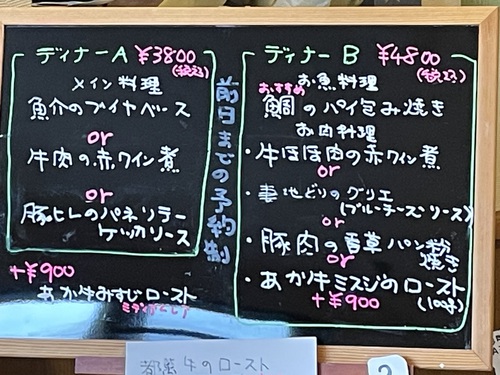 ディナーA ¥3800
(税込)
メイン料理
魚介のブイヤベース
or
牛肉の赤ワイン煮
or
豚ヒレのパネソテー
ケッカソース
+¥900
あか牛みすじロースト
ミディアムレア
前日までの予約制
ディナーB ¥4800
(税込)
お魚料理
おすすめ
鯛のパイ包み焼き
お肉料理
・牛ほほ肉の赤ワイン煮
or
・妻地どりのグリエ
(ブルーチーズソース)
or
・豚肉の香草パン粉
焼き
or
・あか牛ミスジのロースト
+¥900 (100g)
牛のロースト
2